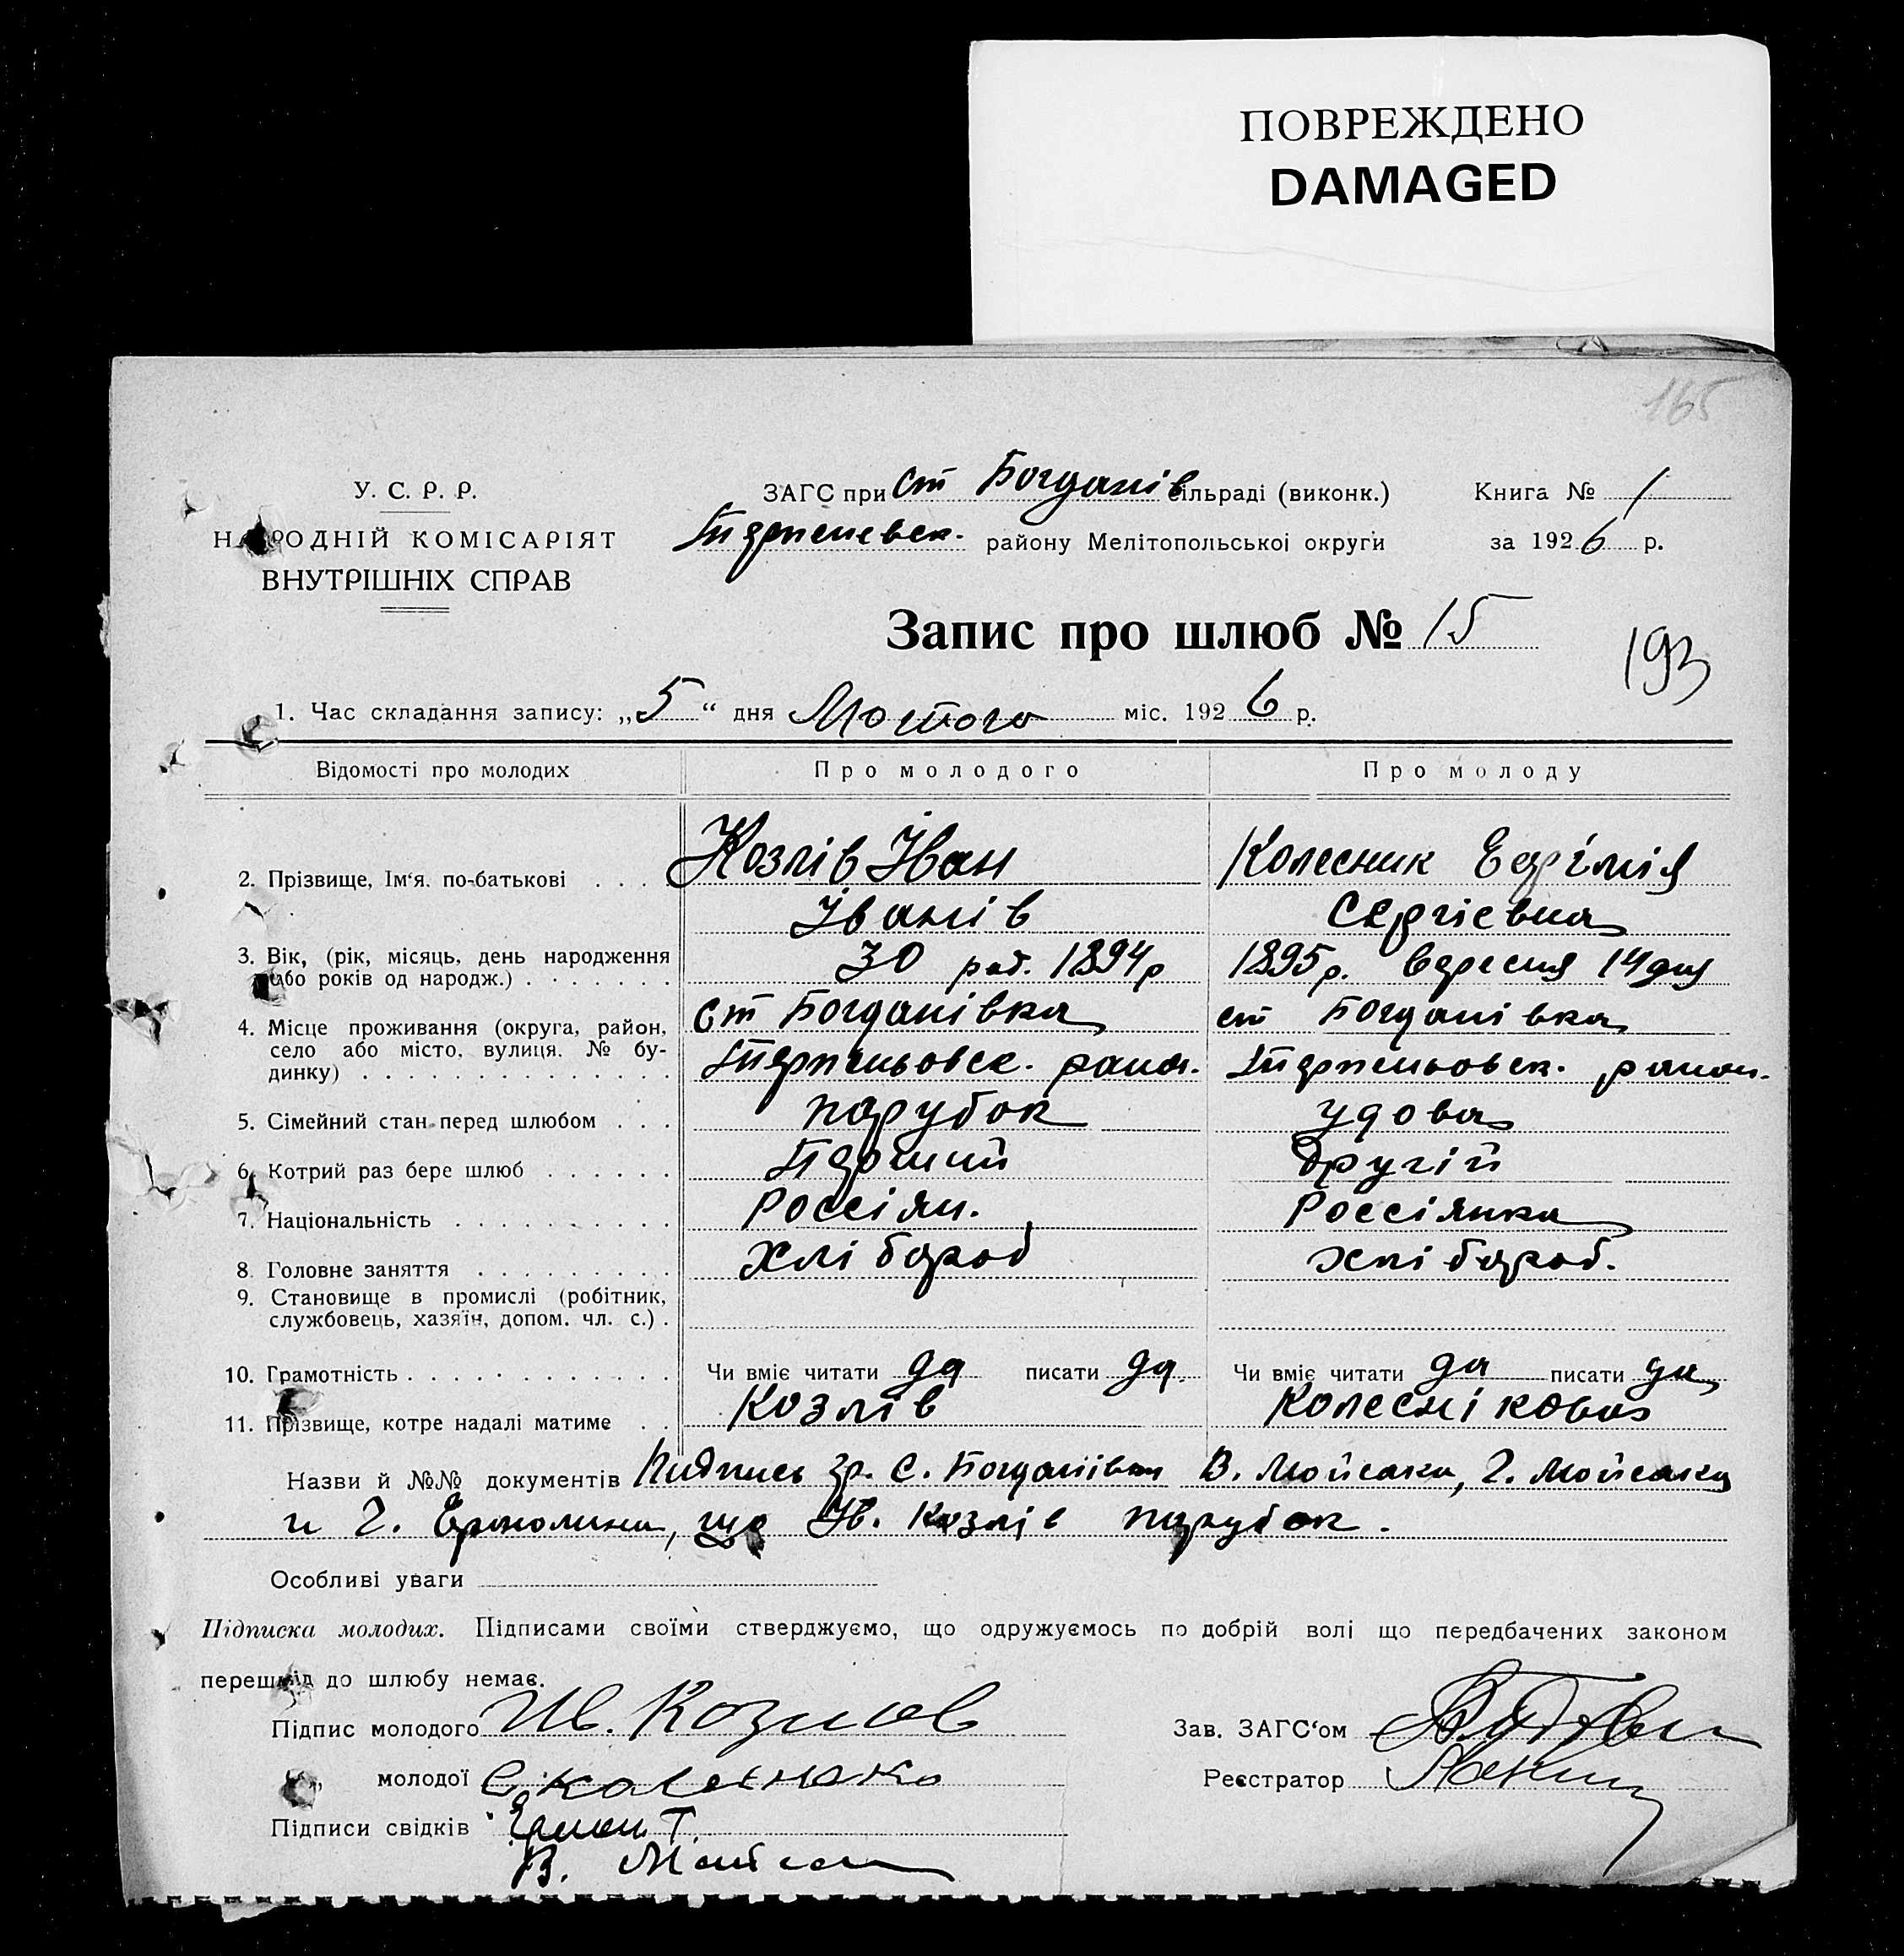 ПОВРЕЖДЕНО
DAMAGED
165
У. С. Р. Р.
НАРОДНІЙ КОМІСАРІЯТ
ВНУТРІШНІХ СПРАВ
ЗАГС при ст Богданів сільраді (виконк.) Книга № 1
Терпеневск. району Мелітопольської округи за 1926 р.
Запис про шлюб № 15
193
1. Час складання запису: „5“ дня Лютого міс. 1926 р.
Відомості про молодих Про молодого Про молоду
2. Прізвище, Ім'я, по-батькові . . . . Козлів Іван Колесник Ефімія
Іванів Сергієвна
3. Вік, (рік, місяць, день народження 30 рос. 1894 р 1895 р. вересня 14 дня
або років од народж.) . . . . . . .
4. Місце проживання (округа, район, ст Богданівка ст Богданівка
село або місто, вулиця, № бу- Терпеньовск. район. Терпеньовск. район.
динку) . . . . . . . . . . . . . .
5. Сімейний стан перед шлюбом . . . парубок удова
6. Котрий раз бере шлюб . . . . . . Перший другій
7. Національність . . . . . . . . . . Россіян. Россіянка
8. Головне заняття . . . . . . . . . хлібороб хлібороб.
9. Становище в промислі (робітник,
службовець, хазяїн, допом. чл. с.) .
10. Грамотність . . . . . . . . . . . . Чи вміє читати да писати да. Чи вміє читати да писати да
11. Прізвище, котре надалі матиме . . Козлів Колеснікова
Назви й №№ документів Підпись гр. с. Богданівки В. Мойсака, Г. Мойсака
и Г. Ермолина, що Ів. Козлів парубок.
Особливі уваги
Підписка молодих. Підписами своїми стверджуємо, що одружуємось по добрій волі що передбачених законом
перешкід до шлюбу немає.
Підпис молодого Ив. Козлов Зав. ЗАГС'ом
„ молодої Реєстратор
Підписи свідків Т.
В.